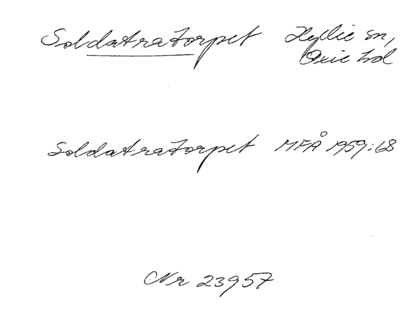 Soldatratorpet Hyllie sn,
Oxie hd
Soldatratorpet MFÅ 1959:68
Nr 23957